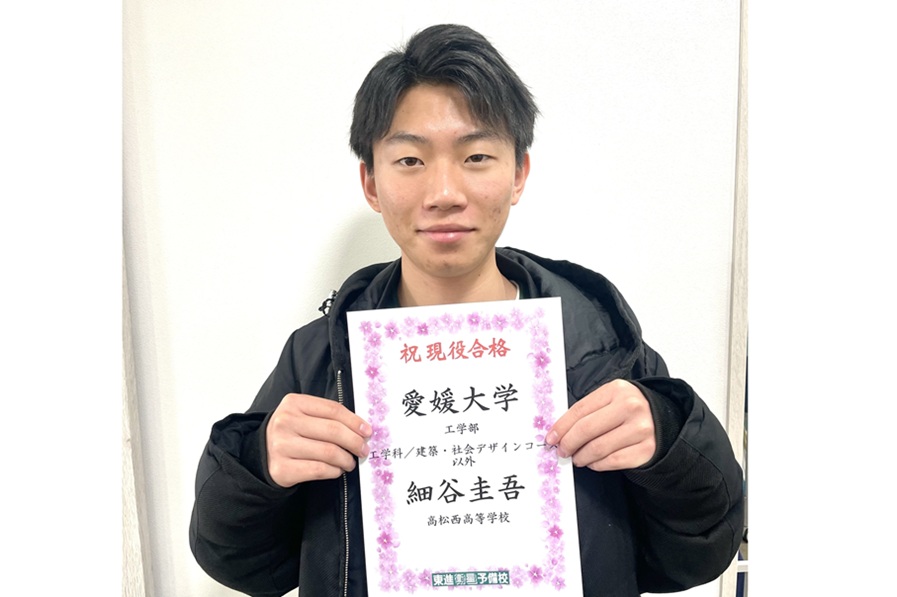 祝 現役合格
愛媛大学
工学部
工学科／建築・社会デザインコー
以外
細谷圭吾
高松西高等学校
東進衛星予備校